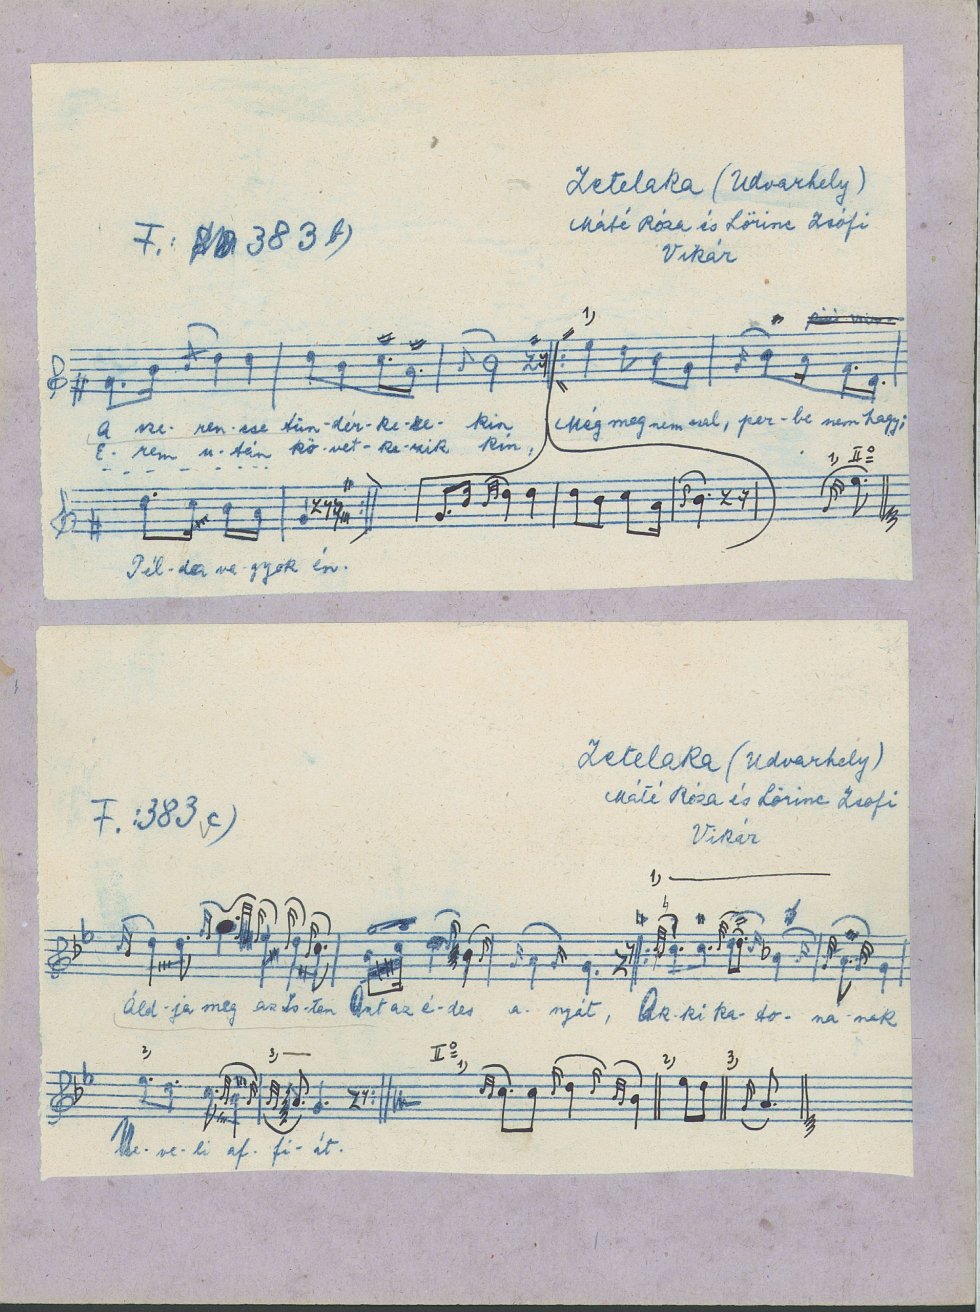 Zetelaka (Udvarhely)
Máté Róza és Lőrinc Zsófi
Vikár
F.: 383 b)
1)
A sze- ren-cse tün-dér-ke-re- kin Még meg nem csal, per-be nem hagy;
E- rem u-tán kö-vet-ke-zik kin,
1) IIº=
Pél-da va-gyok én.
Zetelaka (Udvarhely)
Máté Róza és Lőrinc Zsófi
Vikár
F.:383 c)
1)
Áld-ja meg az Is-ten Azt az é-des a- nyát, Ak-ki ka-to- na-nak
2) 3) IIº= 1) 2) 3)
Ne-ve-li af- fi- át.